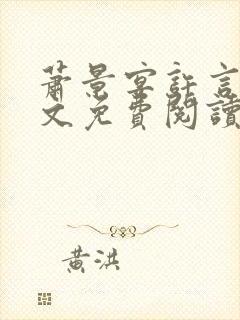 蕭景宴許言
文免費閱讀
黃洪